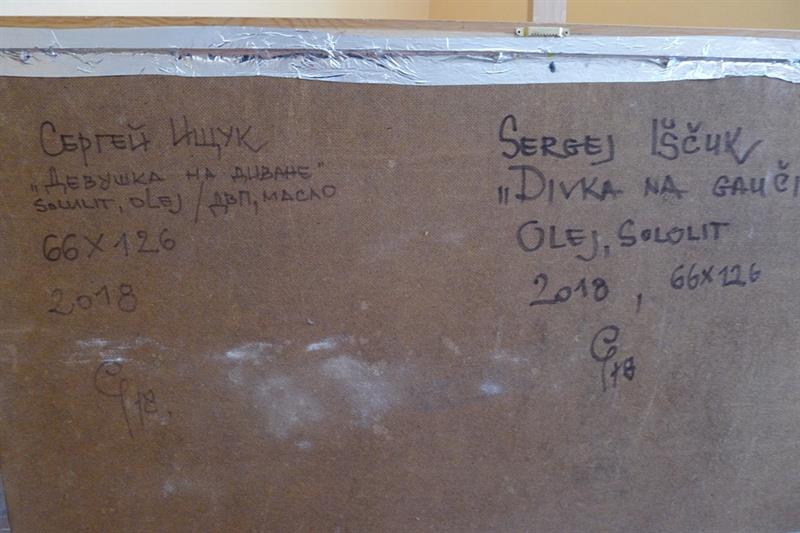 Сергей Ищук
„Девушка на диване"
Sololit, olej / ДВП, масло
66 x 126
2018
18.
Sergej Iščuk
„Divka na gauči
Olej, Sololit
2018, 66x126
18